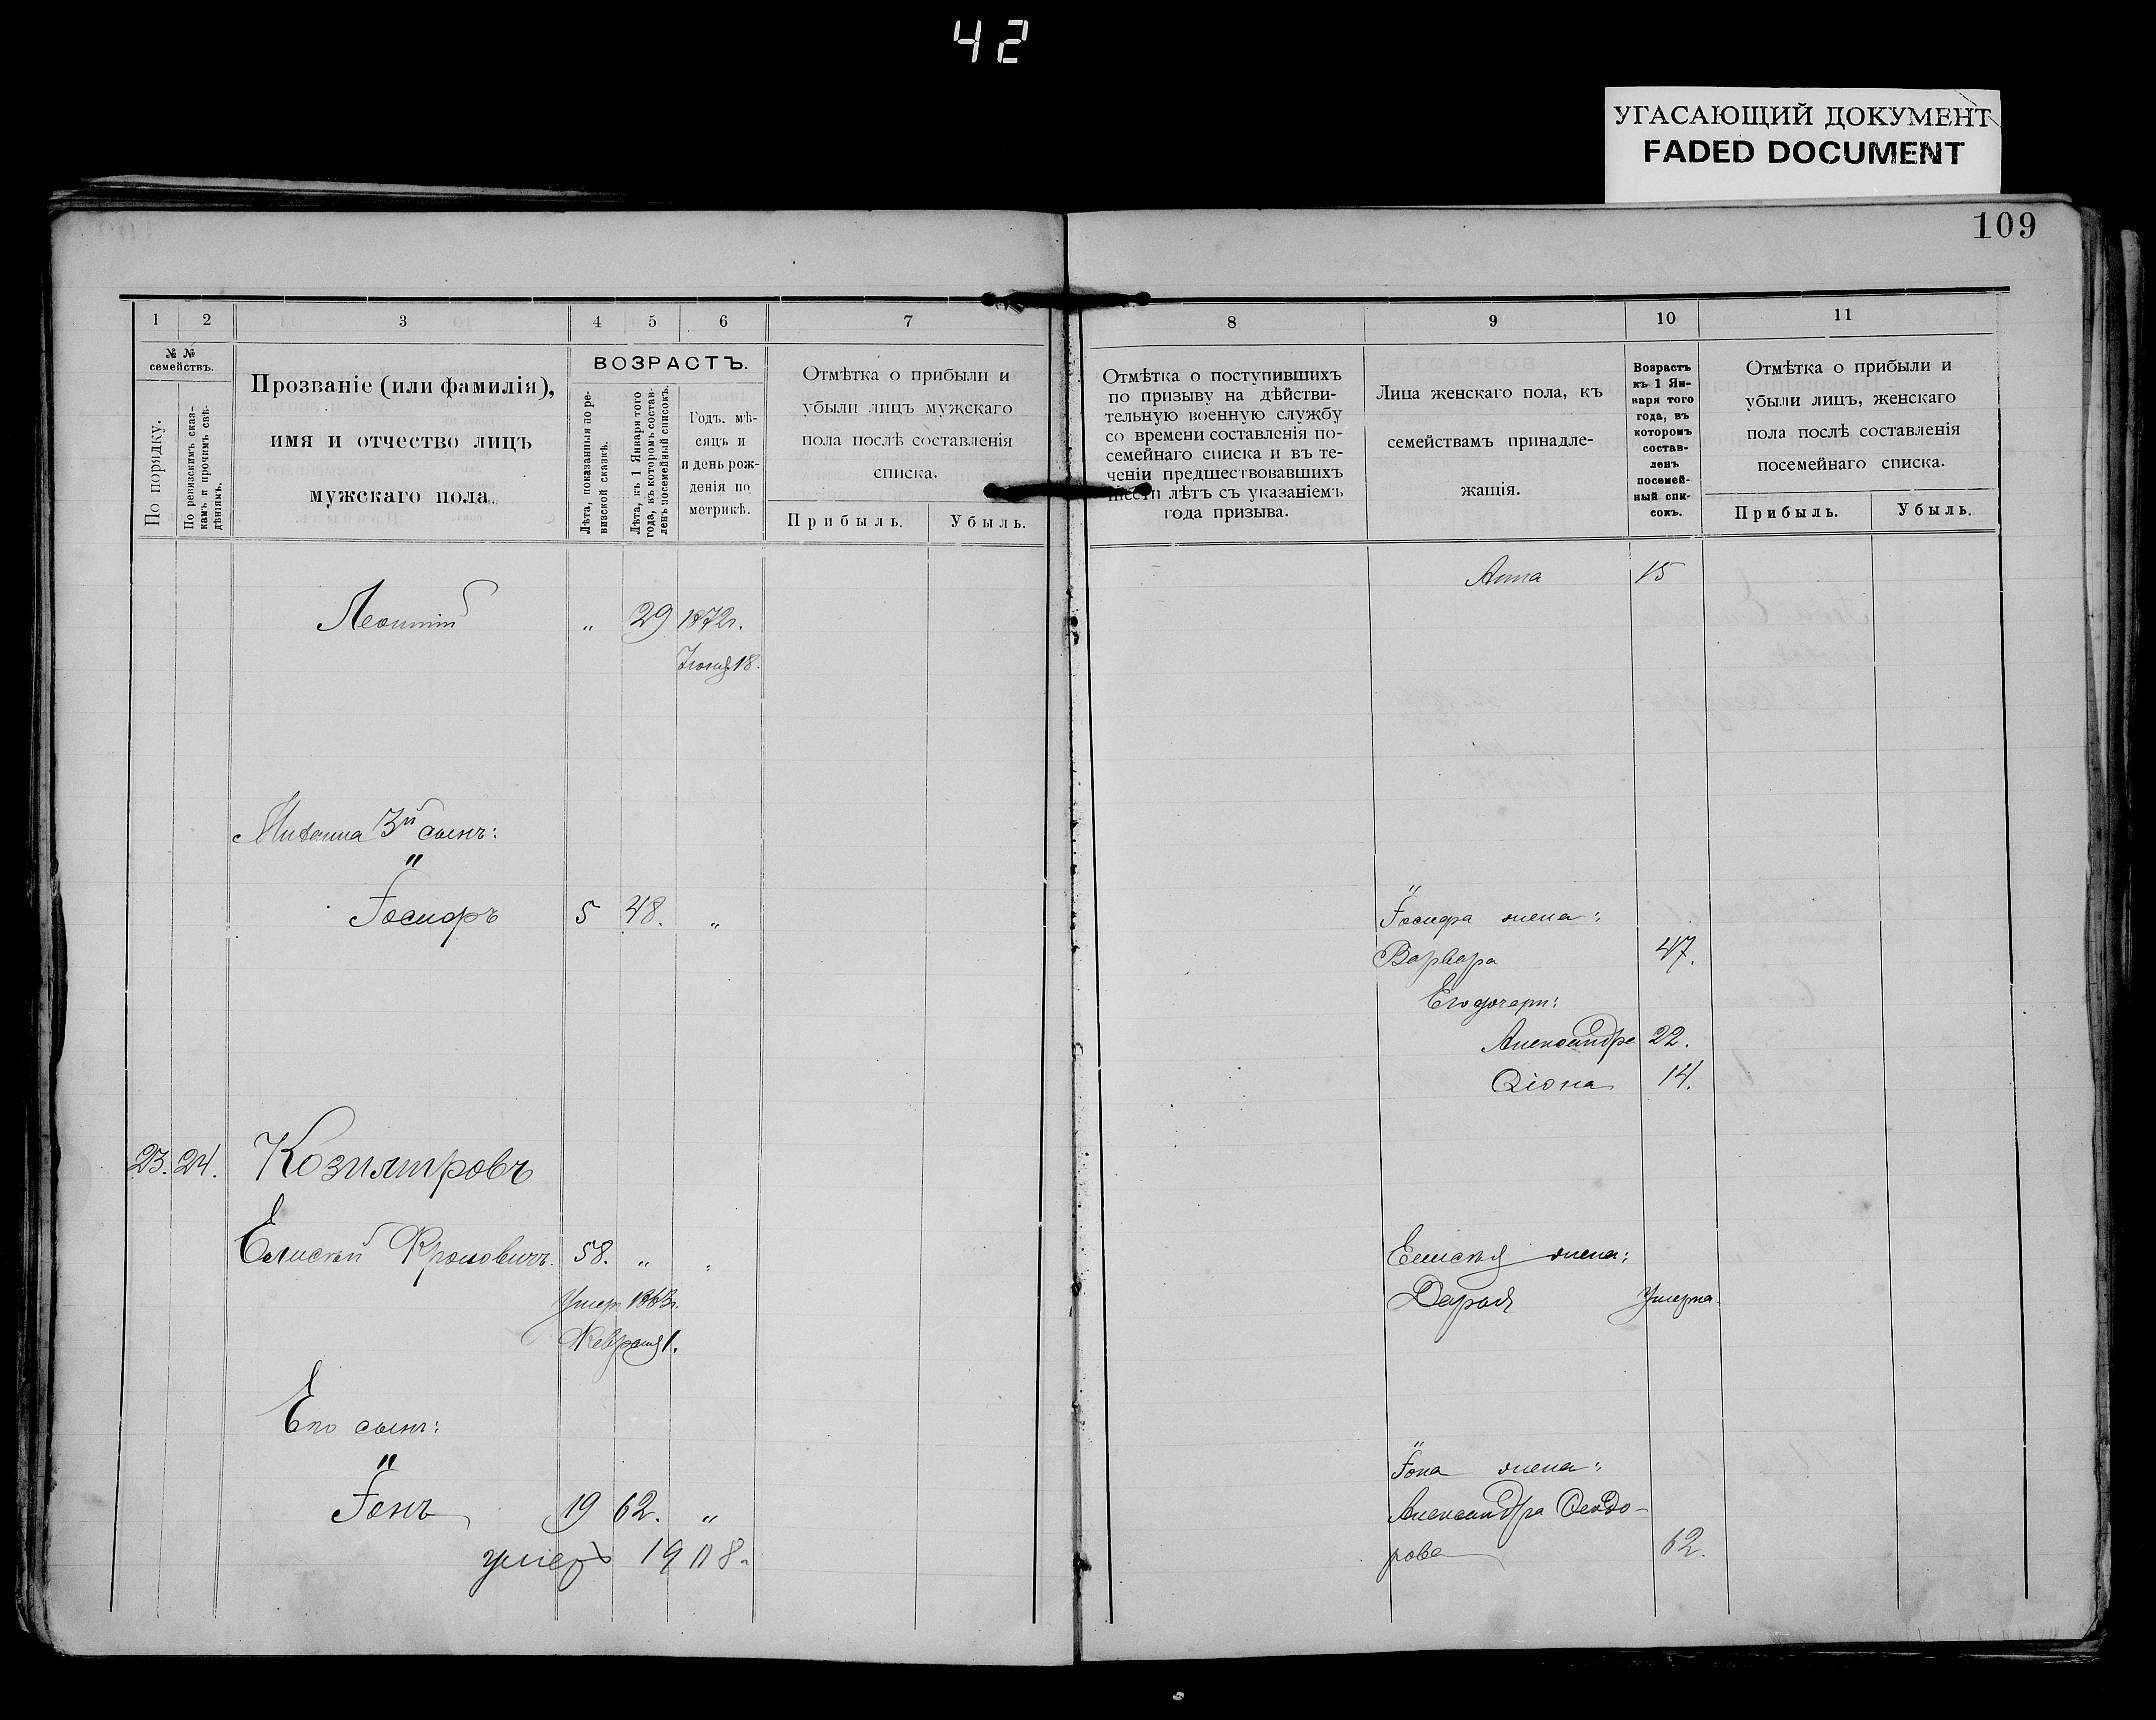 42
УГАСАЮЩИЙ ДОКУМЕНТ
FADED DOCUMENT
109
1 2 3 4 5 6 7
№ №
семействъ.
По порядку.
По ревизскимъ сказ-
камъ и прочимъ свѣ-
дѣніямъ.
Прозваніе (или фамилія),
имя и отчество лицъ
мужскаго пола.
ВОЗРАСТЪ.
Лѣта, показанныя по ре-
визской сказкѣ.
Лѣта, къ 1 Января того
года, въ которомъ состав-
ленъ посемейный списокъ.
Годъ, мѣ-
сяцъ и
и день рож-
денія по
метрикѣ.
Отмѣтка о прибыли и
убыли лицъ мужскаго
пола послѣ составленія
списка.
Прибыль. Убыль.
Леонтій „ 29 1872г.
Іюня 18.
3й сынъ:
Іосифъ 5 48. „
23. 24.
Елисей 58. „ „
Умер. 1863г.
Февраля 1.
Его сынъ:
Іонъ 19 62. „
умеръ 1908.
8 9 10 11
Отмѣтка о поступившихъ
по призыву на дѣйстви-
тельную военную службу
со времени составленія по-
семейнаго списка и въ те-
ченіи предшествовавшихъ
шести лѣтъ съ указаніемъ
года призыва.
Лица женскаго пола, къ
семействамъ принадле-
жащія.
Возрастъ
къ 1 Ян-
варя того
года, въ
которомъ
состав-
ленъ
посемей-
ный спи-
сокъ.
Отмѣтка о прибыли и
убыли лицъ, женскаго
пола послѣ составленія
посемейнаго списка.
Прибыль. Убыль.
Анна 15
Іосифа жена:
Варвара 47.
Его дочери:
Александра 22.
14.
Елисея жена:
Дарья Умерла.
Іона жена:
Александра Ѳеодо-
рова 62.